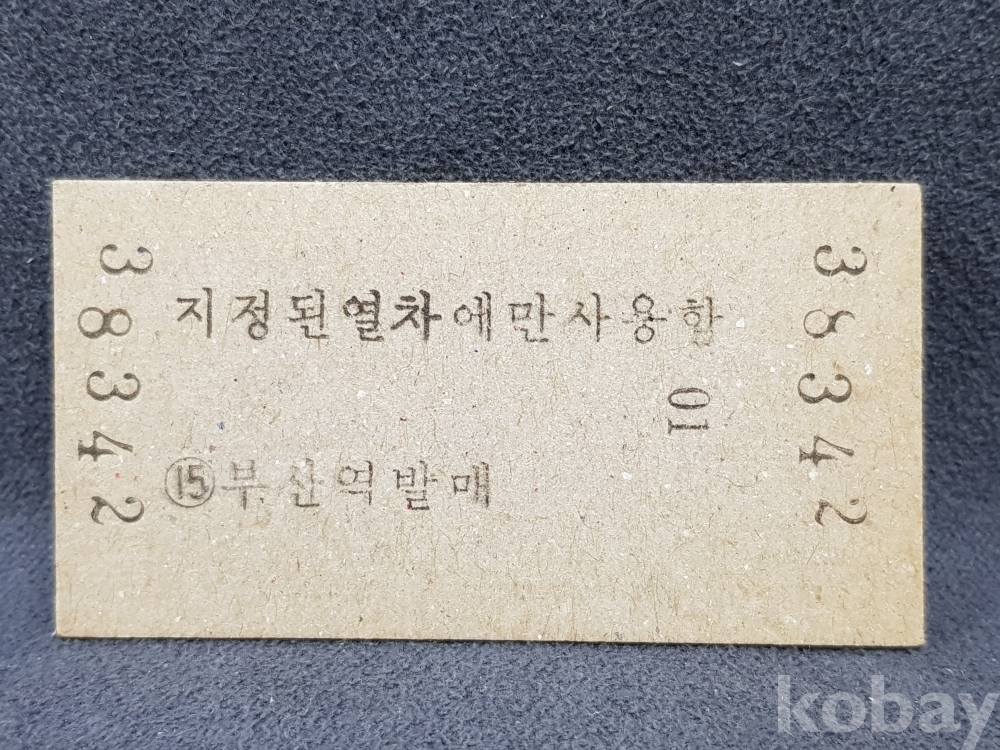 38342
지정된열차에만사용함
01
⑮부산역발매
38342
kobay